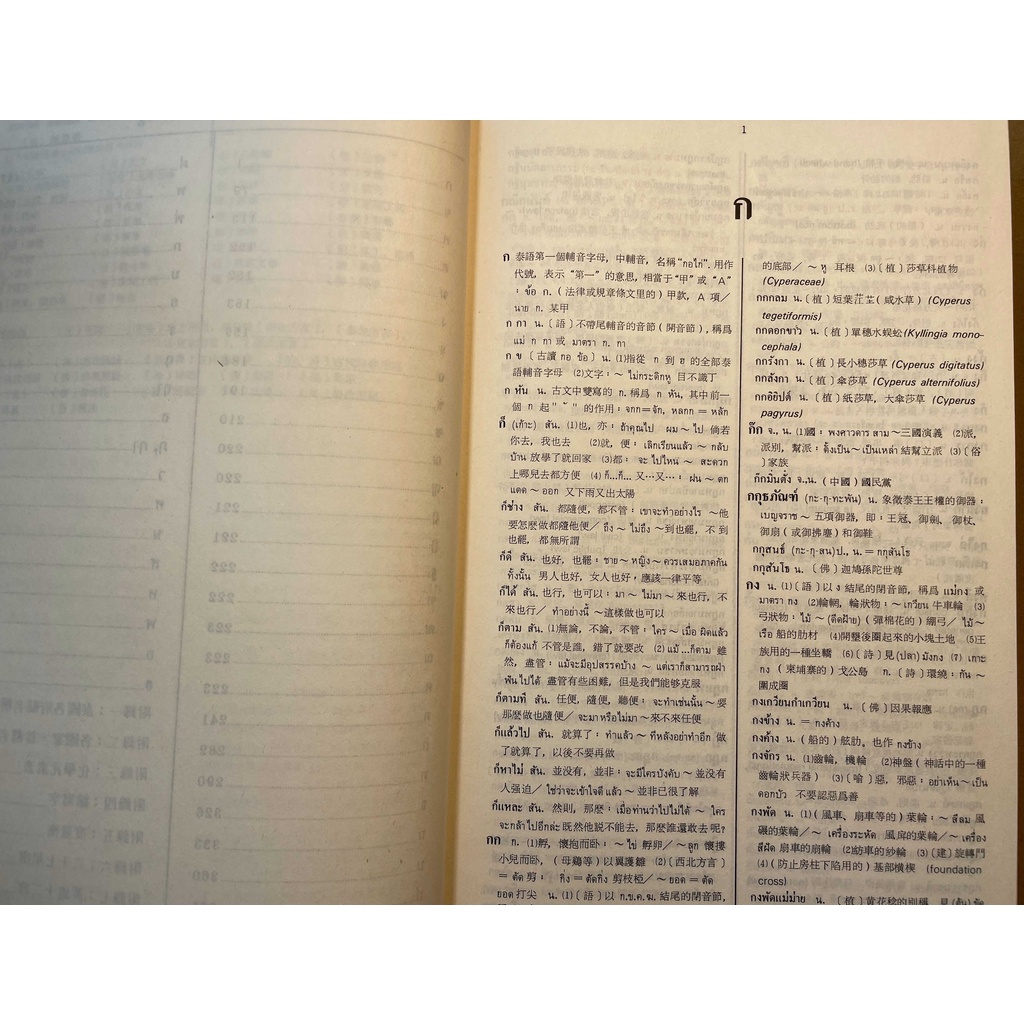 1
ก
ก 泰語第一個輔音字母, 中輔音, 名稱"กอไก่". 用作
代號, 表示"第一"的意思, 相當于"甲"或"A"
: ข้อ ก. (法律或規章條文里的) 甲款, A 項/
นาย ก. 某甲
ก กา น. 〔語〕不帶尾輔音的音節(開音節), 稱爲
แม่ ก กา หรือ มาตรา ก. กา
ก ข 〔古讀 กอ ข้อ〕 น. (1)指從 ก 到 ฮ 的全部泰
語輔音字母 (2)文字: ~ ไม่กระดิกหู 目不識丁
ก หัน น. 古文中雙寫的 ก. 稱爲 ก หัน, 其中前一
個 ก 起" ั "的作用: จกก=จัก, หลกก = หลัก
ก็ (เก้าะ) สัน. (1)也, 亦: ถ้าคุณไป ผม ~ ไป 倘若
你去, 我也去 (2)就, 便: เลิกเรียนแล้ว ~ กลับ
บ้าน 放學了就回家 (3)都: จะ ไปไหน ~ สะดวก
上哪兒去都方便 (4) ก็...ก็... 又…又…: ฝน ~ ตก
แดด ~ ออก 又下雨又出太陽
ก็ช่าง สัน. 都隨便, 都不管: เขาจะทำอย่างไร ~他
要怎麽做都隨他便/ ถึง ~ ไม่ถึง ~ 到也罷, 不到
也罷, 都無所謂
ก็ดี สัน. 也好, 也罷: ชาย ~ หญิง ~ ควรเสมอภาคกัน
ทั้งนั้น 男人也好, 女人也好, 應該一律平等
ก็ได้ สัน. 也行, 也可以: มา ~ ไม่มา ~ 來也行, 不
來也行/ ทำอย่างนี้ ~這樣做也可以
ก็ตาม สัน. (1)無論, 不論, 不管: ใคร ~ เมื่อ ผิดแล้ว
ก็ต้องแก้ 不管是誰, 錯了就要改 (2) แม้...ก็ตาม 雖
然, 盡管: แม้จะมีอุปสรรคบ้าง ~ แต่เราก็สามารถฝ่า
ฟันไปได้ 盡管有些困難, 但是我們能够克服
ก็ตามที สัน. 任便, 隨便, 聽便: จะทำเช่นนั้น ~ 要
那麽做也隨便/ จะมาหรือไม่มา ~ 來不來任便
ก็แล้วไป สัน. 就算了: ทำแล้ว ~ ทีหลังอย่าทำอีก 做
了就算了, 以後不要再做
ก็หาไม่ สัน. 並没有, 並非: จะมีใครบังคับ ~ 並没有
人强迫/ ใช่ว่าจะเข้าใจดีแล้ว ~ 並非已很了解
ก็แหละ สัน. 然則, 那麽: เมื่อท่านว่าไปไม่ได้ ~ ใคร
จะกล้าไปอีกล่ะ 既然他説不能去, 那麽誰還敢去呢?
กก ก. (1)孵, 懷抱而卧: ~ ไข่ 孵卵/ ~ลูก 懷摟
小兒而卧, (母鷄等)以翼護雛 (2)〔西北方言〕
= ตัด 剪: กิ่ง = ตัดกิ่ง 剪枝椏/ ~ ยอด = ตัด
ยอด 打尖 น. (1)〔語〕以 ก.ข.ค.ฆ. 結尾的閉音節,
的底部/ ~ หู 耳根 (3)〔植〕莎草科植物
(Cyperaceae)
กกกลม น. 〔植〕短葉茳芏(咸水草) (Cyperus
tegetiformis)
กกดอกขาว น. 〔植〕單穗水蜈蚣(Kyllingia mono-
cephala)
กกรังกา น. 〔植〕長小穗莎草 (Cyperus digitatus)
กกลังกา น. 〔植〕傘莎草 (Cyperus alternifolius)
กกอียิปต์ น. 〔植〕紙莎草, 大傘莎草 (Cyperus
pagyrus)
ก๊ก จ., น. (1)國: พงศาวดาร สาม ~ 三國演義 (2)派,
派別, 幫派: ตั้งเป็น ~ เป็นเหล่า 結幫立派 (3)〔俗
〕家族
ก๊กมินตั๋ง จ.,น. (中國)國民黨
กกุธภัณฑ์ (กะ-กุ-ทะพัน) น. 象徵泰王王權的御器:
เบญจราช ~ 五項御器, 即: 王冠, 御劍, 御杖,
御扇(或御拂塵)和御鞋
กกุสนธ์ (กะ-กุ-สน)ป., น. = กกุสันโธ
กกุสันโธ น. 〔佛〕迦鳩孫陀世尊
กง น. (1)〔語〕以 ง 結尾的閉音節, 稱爲 แม่กง 或
มาตรา กง (2)輪輞, 輪狀物: ~ เกวียน 牛車輪 (3)
弓狀物: ไม้ ~ (ดีดฝ้าย) (彈棉花的)綳弓/ ไม้ ~
เรือ 船的肋材 (4)開墾後圈起來的小塊土地 (5)王
族用的一種坐轎 (6)〔詩〕見(ปลา)มังกง (7) เกาะ
กง (柬埔寨的)戈公島 ก. 〔詩〕環繞: กัน ~
圍成圈
กงเกวียนกำเกวียน น. 〔佛〕因果報應
กงข้าง น. = กงค้าง
กงค้าง น. (船的)舷肋. 也作 กงข้าง
กงจักร น. (1)齒輪, 機輪 (2)神盤(神話中的一種
齒輪狀兵器) (3)〔喻〕惡, 邪惡: อย่าเห็น ~ เป็น
ดอกบัว 不要認惡爲善
กงพัด น. (1)(風車, 扇車等的)葉輪: ~ สีลม 風
碾的葉輪/ ~ เครื่องระหัด 風戽的葉輪/ ~ เครื่อง
สีฝัด 扇車的扇輪 (2)紡車的紗輪 (3)〔建〕旋轉門
(4)(防止房柱下陷用的)基部橫楔 (foundation
cross)
กงพัดแม่ม่าย น. 〔植〕黄花稔的別稱,